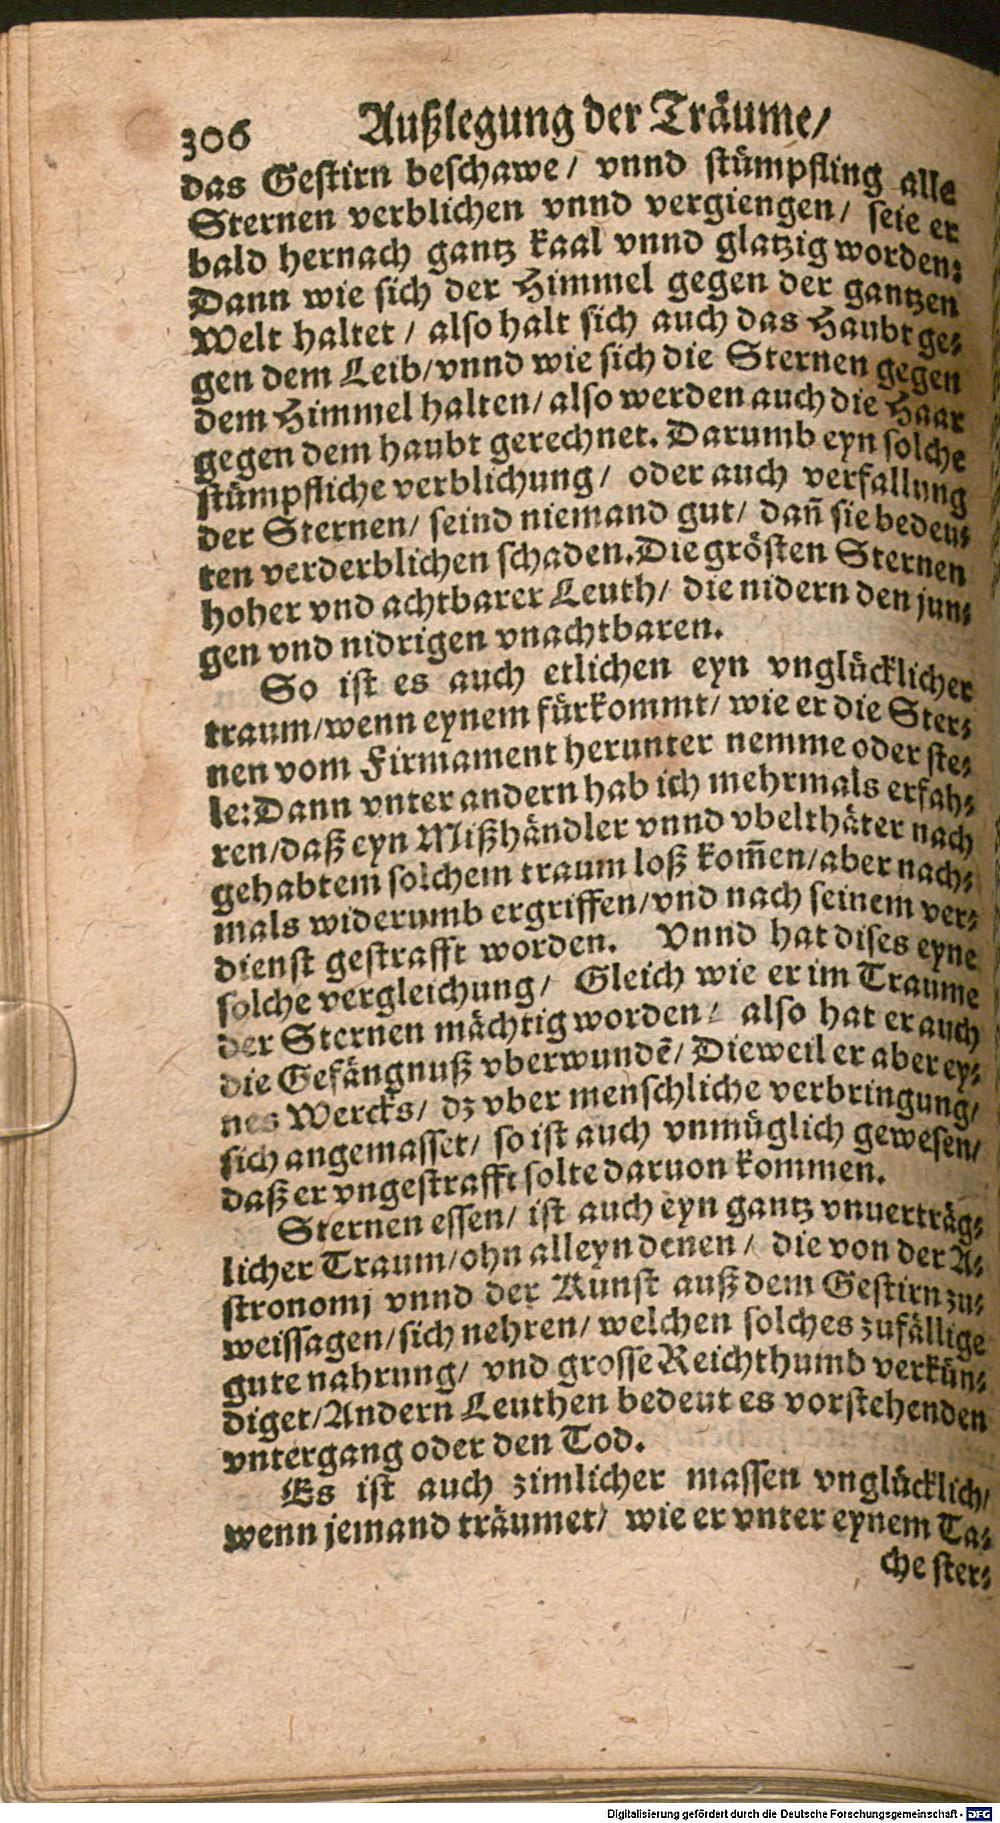 306 Außlegung der Träume/
das Gestirn beschawe/ vnnd stümpfling alle
Sternen verblichen vnnd vergiengen/ seie er
bald hernach gantz kaal vnnd glatzig worden:
Dann wie sich der Himmel gegen der gantzen
Welt haltet/ also halt sich auch das Haubt ge⸗
gen dem Leib/vnnd wie sich die Sternen gegen
dem Himmel halten/also werden auch die Haar
gegen dem haubt gerechnet. Darumb eyn solche
stümpfliche verblichung/ oder auch verfallung
der Sternen/ seind niemand gut/ dañ sie bedeu⸗
ten verderblichen schaden. Die grösten Sternen
hoher vnd achtbarer Leuth/ die nidern den jun⸗
gen vnd nidrigen vnachtbaren.
So ist es auch etlichen eyn vnglücklicher
traum/wenn eynem fürkommt/ wie er die Ster⸗
nen vom Firmament herunter nemme oder ste⸗
le: Dann vnter andern hab ich mehrmals erfah⸗
ren/daß eyn Mißhändler vnnd vbelthäter nach
gehabtem solchem traum loß kom̃en/aber nach⸗
mals widerumb ergriffen/vnd nach seinem ver⸗
dienst gestrafft worden. Vnnd hat dises eyne
solche vergleichung/ Gleich wie er im Traume
der Sternen mächtig worden/ also hat er auch
die Gefängnuß vberwundẽ/ Dieweil er aber ey⸗
nes Wercks/ dz vber menschliche verbringung/
sich angemasset/ so ist auch vnmüglich gewesen/
daß er vngestrafft solte daruon kommen.
Sternen essen/ ist auch eyn gantz vnuerträg⸗
licher Traum/ohn alleyn denen/ die von der A⸗
stronomj vnnd der Kunst auß dem Gestirn zu⸗
weissagen/sich nehren/ welchen solches zufällige
gute nahrung/ vnd grosse Reichthumb verkün⸗
diget/Andern Leuthen bedeut es vorstehenden
vntergang oder den Tod.
Es ist auch zimlicher massen vnglücklich/
wenn jemand träumet/ wie er vnter eynem Ta⸗
che ster⸗
Digitalisierung gefördert durch die Deutsche Forschungsgemeinschaft - DFG